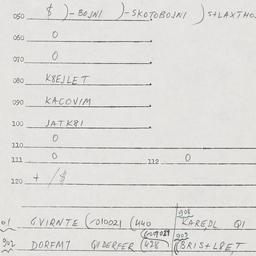 050 $ )-BOJNI )-SKOTOBOJNI )S+LAXTHO
060 0
070 0
080 K8EJLET
090 KACOVIM
100 JATK8I
110 0
111 0 112 0
120 + /$
01 G.VIRNTE (-010021 (440 908 KAREDL QI
902 DORFMT QIDERFER (438 903 (BRIS+L8E,T